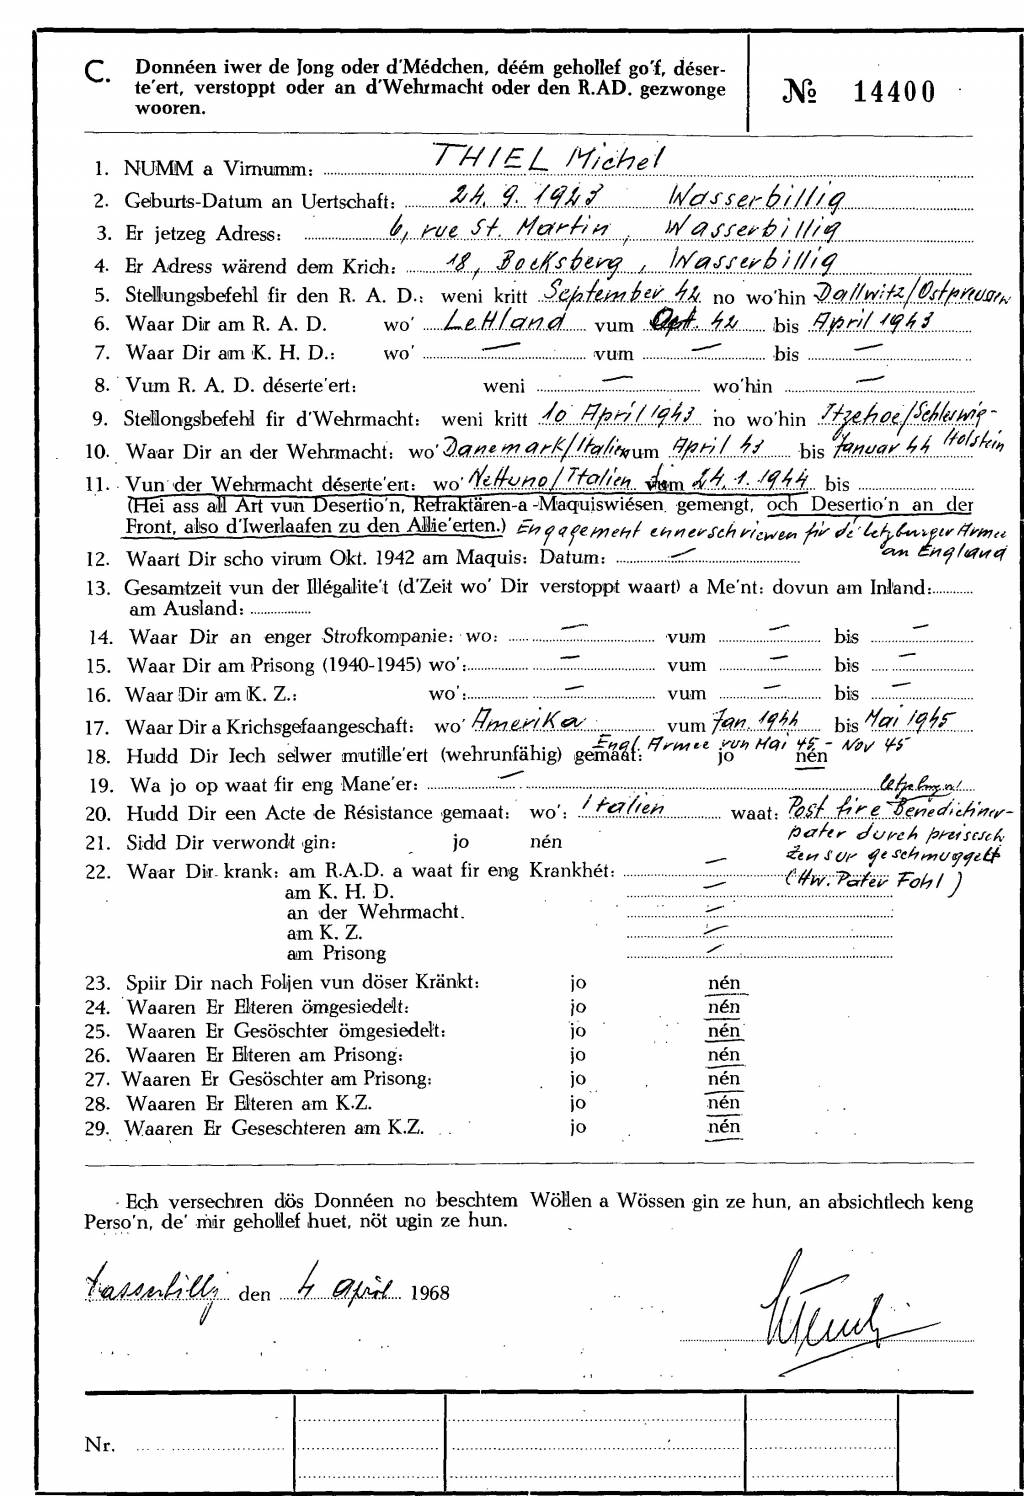 C. Donnéen iwer de Jong oder d'Médchen, déém gehollef go'f, déser-
te'ert, verstoppt oder an d'Wehrmacht oder den R.AD. gezwonge
wooren.
№ 14400
1. NUMM a Virnumm: THIEL Michel
2. Geburts-Datum an Uertschaft: 24. 9. 1923 Wasserbillig
3. Er jetzeg Adress: 6, rue St. Martin, Wasserbillig
4. Er Adress wärend dem Krich: 18, Bocksberg, Wasserbillig
5. Stellungsbefehl fir den R. A. D.: weni kritt September 42 no wo'hin Dallwitz/Ostpreusen
6. Waar Dir am R. A. D. wo' Lettland vum Okt. 42 bis April 1943
7. Waar Dir am K. H. D.: wo' — vum — bis —
8. Vum R. A. D. déserte'ert: weni — wo'hin —
9. Stellongsbefehl fir d'Wehrmacht: weni kritt 10 April 1943 no wo'hin Itzehoe/Schleswig-
Holstein
10. Waar Dir an der Wehrmacht: wo' Danemark/Italien vum April 43 bis Januar 44
11. Vun der Wehrmacht déserte'ert: wo' Nettuno/Italien vum 24. 1. 1944 bis
(Hei ass all Art vun Desertio'n, Refraktären-a -Maquiswiésen gemengt, och Desertio'n an der
Front, also d'Iwerlaafen zu den Allie'erten.) Engagement ennerschriewen fir de letzburger Armee
an England
12. Waart Dir scho virum Okt. 1942 am Maquis: Datum: —
13. Gesamtzeit vun der Illégalite't (d'Zeit wo' Dir verstoppt waart) a Me'nt: dovun am Inland:
am Ausland:
14. Waar Dir an enger Strofkompanie: wo: — vum — bis —
15. Waar Dir am Prisong (1940-1945) wo': — vum — bis —
16. Waar Dir am K. Z.: wo': — vum — bis —
17. Waar Dir a Krichsgefaangeschaft: wo' Amerika vum Jan. 1944 bis Mai 1945
Engl. Armee vun Mai 45 - Nov 45
18. Hudd Dir Iech selwer mutille'ert (wehrunfähig) gemaat: jo nén
19. Wa jo op waat fir eng Mane'er: —
20. Hudd Dir een Acte de Résistance gemaat: wo': Italien waat: Post fir e Benedictiner-
21. Sidd Dir verwondt gin: jo nén
pater durch preisesch
zensur geschmuggelt
22. Waar Dir krank: am R.A.D. a waat fir eng Krankhét: —
(Hw. Pater Fohl)
am K. H. D. —
an der Wehrmacht. —
am K. Z. —
am Prisong —
23. Spiir Dir nach Foljen vun döser Kränkt: jo nén
24. Waaren Er Elteren ömgesiedelt: jo nén
25. Waaren Er Gesöschter ömgesiedelt: jo nén
26. Waaren Er Elteren am Prisong: jo nén
27. Waaren Er Gesöschter am Prisong: jo nén
28. Waaren Er Elteren am K.Z. jo nén
29. Waaren Er Geseschteren am K.Z. jo nén
Ech versechren dös Donnéen no beschtem Wöllen a Wössen gin ze hun, an absichtlech keng
Perso'n, de' mir gehollef huet, nöt ugin ze hun.
Wasserbillig den 4 April 1968
Nr.